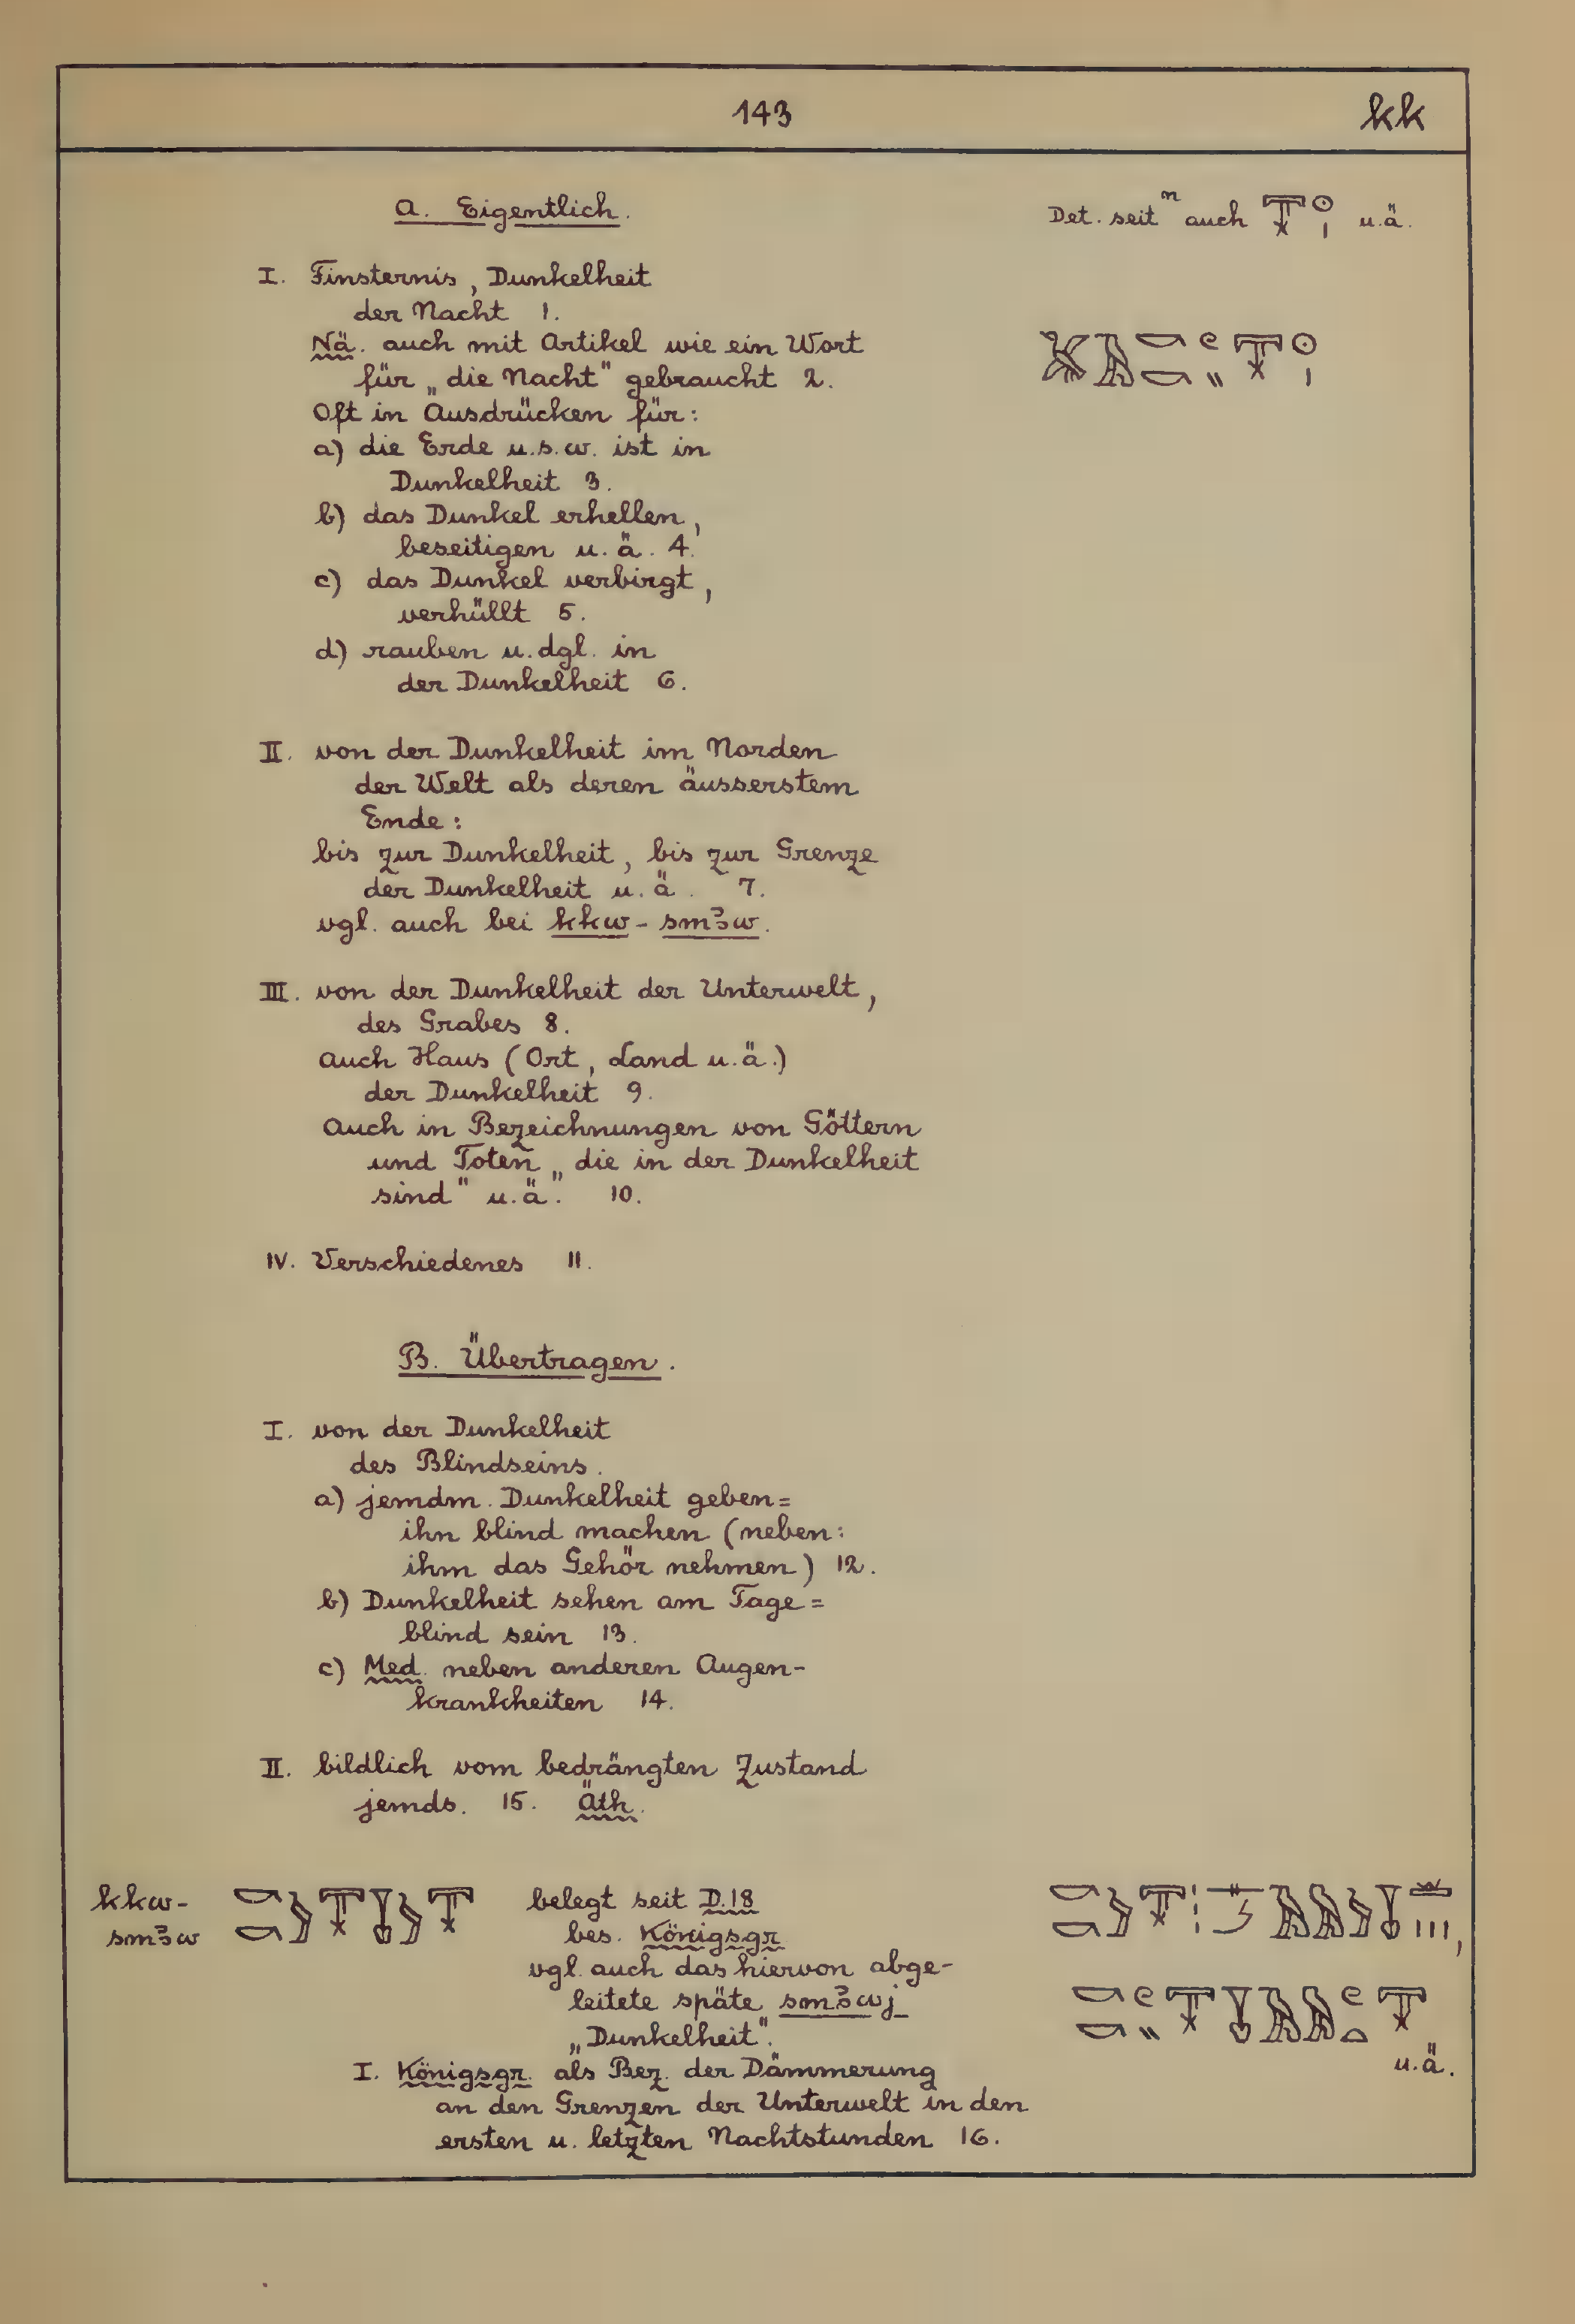 143 kk
A. Eigentlich.
Det. seit n auch 𓇰 𓇳𓏤 u.ä.
I. Finsternis, Dunkelheit
der Nacht 1.
Nä. auch mit Artikel wie ein Wort
für „die Nacht" gebraucht 2.
Oft in Ausdrücken für:
a) die Erde u.s.w. ist in
Dunkelheit 3.
b) das Dunkel erhellen,
beseitigen u.ä. 4.
c) das Dunkel verbirgt,
verhüllt 5.
d) rauben u.dgl. in
der Dunkelheit 6.
II. von der Dunkelheit im Norden
der Welt als deren äusserstem
Ende:
bis zur Dunkelheit, bis zur Grenze
der Dunkelheit u.ä. 7.
vgl. auch bei kkw-smꜣw.
III. von der Dunkelheit der Unterwelt,
des Grabes 8.
auch Haus (Ort, Land u.ä.)
der Dunkelheit 9.
Auch in Bezeichnungen von Göttern
und Toten „die in der Dunkelheit
sind" u.ä. 10.
IV. Verschiedenes 11.
B. Übertragen.
I. von der Dunkelheit
des Blindseins.
a) jemdm. Dunkelheit geben=
ihn blind machen (neben:
ihm das Gehör nehmen) 12.
b) Dunkelheit sehen am Tage =
blind sein 13.
c) Med. neben anderen Augen-
krankheiten 14.
II. bildlich vom bedrängten Zustand
jemds. 15. Äth.
kkw-
smꜣw
belegt seit D.18
bes. Königsgr.
vgl. auch das hiervon abge-
leitete späte smꜣwj
„Dunkelheit".
u.ä.
I. Königsgr. als Bez. der Dämmerung
an den Grenzen der Unterwelt in den
ersten u. letzten Nachtstunden 16.